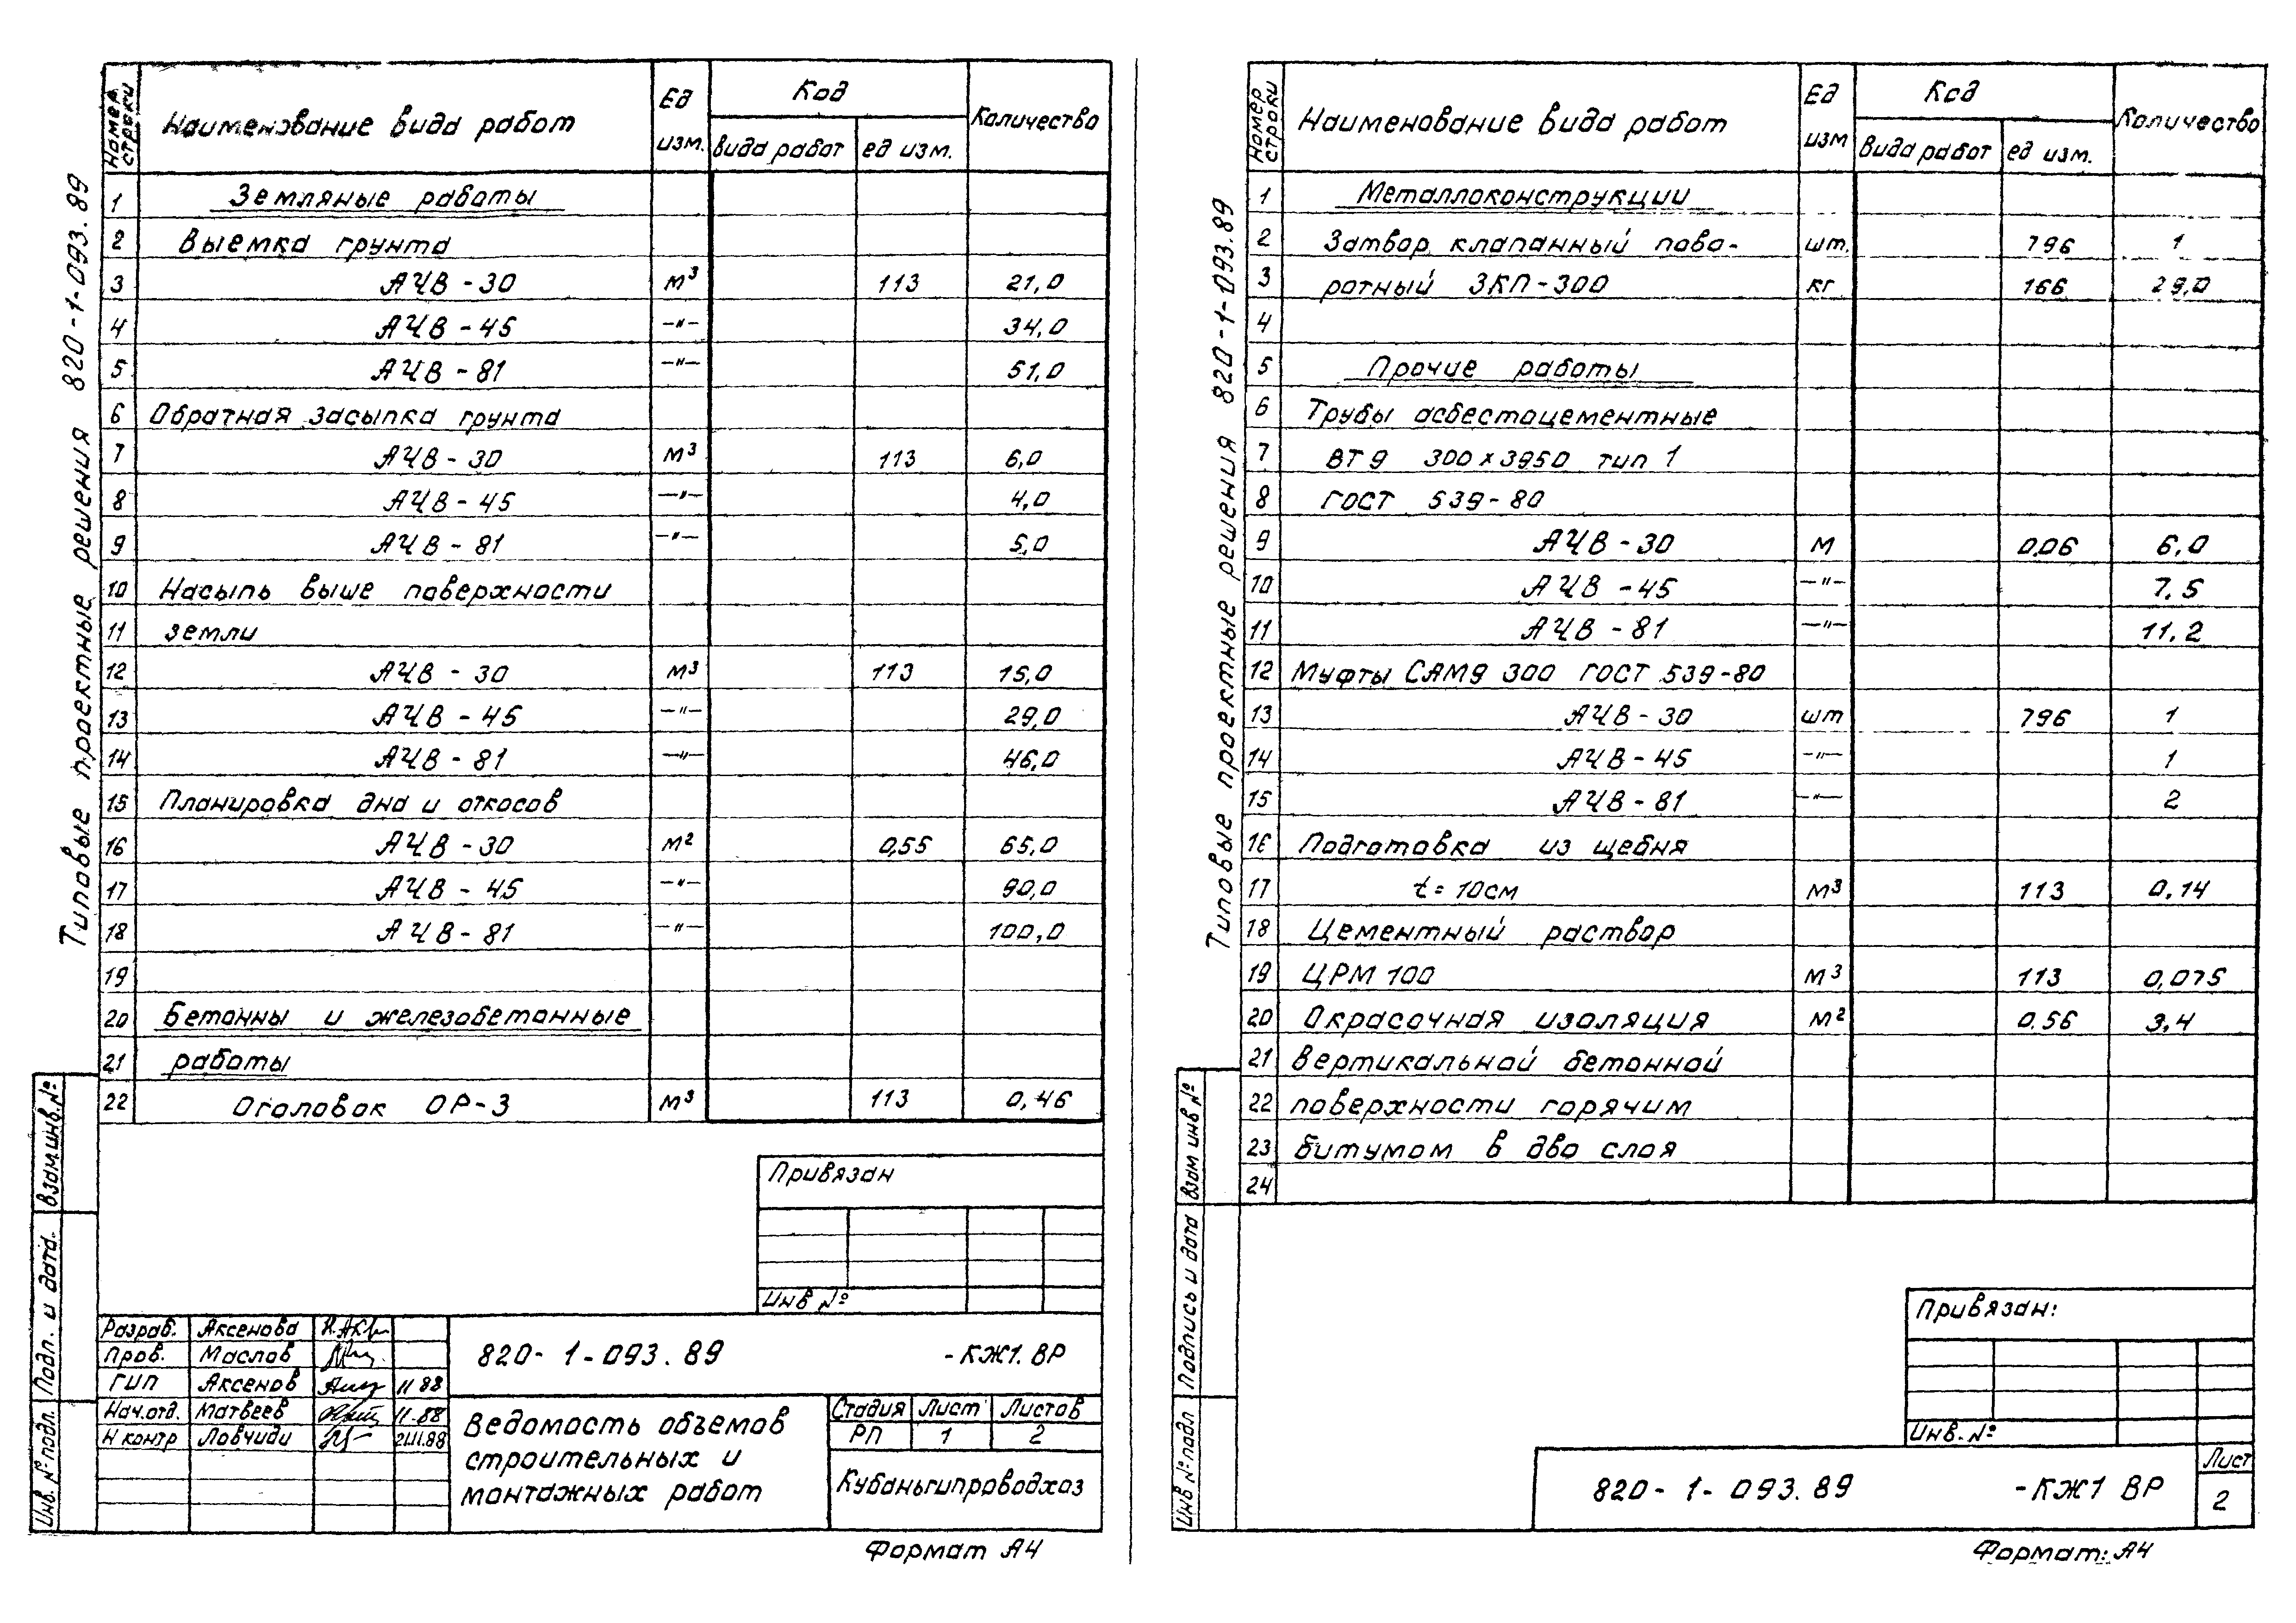 Типовые проектные решения 820-1-093.89
Номер строки | Наименование вида работ | Ед изм. | Код | Количество
вида работ | ед изм.
1 Земляные работы
2 Выемка грунта
3 АЧВ-30 м³ 113 21,0
4 АЧВ-45 —"— 34,0
5 АЧВ-81 —"— 51,0
6 Обратная засыпка грунта
7 АЧВ-30 м³ 113 6,0
8 АЧВ-45 —"— 4,0
9 АЧВ-81 —"— 5,0
10 Насыпь выше поверхности
11 земли
12 АЧВ-30 м³ 113 15,0
13 АЧВ-45 —"— 29,0
14 АЧВ-81 —"— 46,0
15 Планировка дна и откосов
16 АЧВ-30 м² 0,55 65,0
17 АЧВ-45 —"— 90,0
18 АЧВ-81 —"— 100,0
19
20 Бетонны и железобетонные
21 работы
22 Оголовок ОР-3 м³ 113 0,46
Привязан
Инв №
Взам инв. №
Подп. и дата.
Инв. № подл.
Разраб. Аксенова
Пров. Маслов
ГИП Аксенов 11 88
Нач.отд. Матвеев 11.88
Н контр Ловчиди
820-1-093.89 -КЖ1.ВР
Ведомость объемов
строительных и
монтажных работ
Стадия Лист Листов
РП 1 2
Кубаньгипроводхоз
Формат А4
Типовые проектные решения 820-1-093.89
Номер строки | Наименование вида работ | Ед изм | Код | Количество
вида работ | ед изм.
1 Металлоконструкции
2 Затвор клапанный пово- шт. 796 1
3 ротный ЗКП-300 кг 166 29,0
4
5 Прочие работы
6 Трубы асбестоцементные
7 ВТ9 300х3950 тип 1
8 ГОСТ 539-80
9 АЧВ-30 м 0,06 6,0
10 АЧВ-45 —"— 7.5
11 АЧВ-81 —"— 11.2
12 Муфты САМ9 300 ГОСТ 539-80
13 АЧВ-30 шт 796 1
14 АЧВ-45 —"— 1
15 АЧВ-81 —"— 2
16 Подготовка из щебня
17 t=10см м³ 113 0,14
18 Цементный раствор
19 ЦРМ 100 м³ 113 0,075
20 Окрасочная изоляция м² 0.56 3,4
21 вертикальной бетонной
22 поверхности горячим
23 битумом в два слоя
24
Взам инв №
Подпись и дата
Инв № подл
Привязан:
Инв. №
820-1-093.89 -КЖ1 ВР
Лист
2
Формат: А4